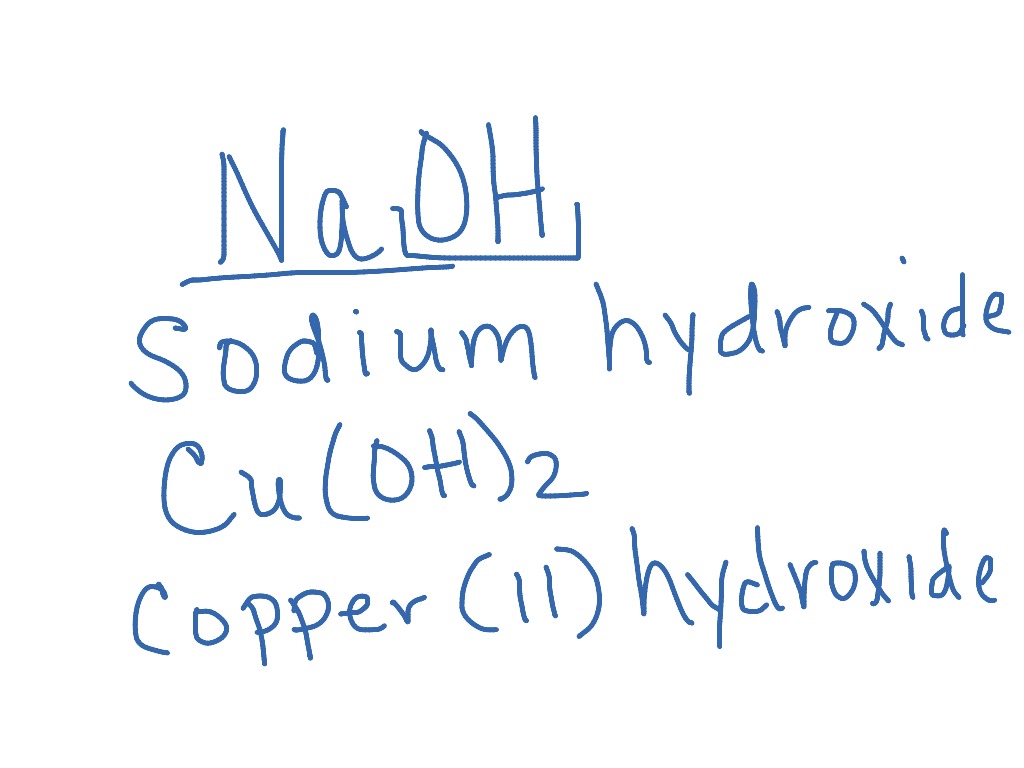 NaOH
Sodium hydroxide
Cu(OH)2
Copper (II) hydroxide